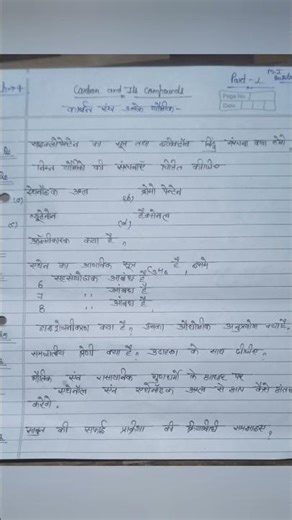 Ch-4
Carbon and Its Compounds
Part-2
Page No.
Date
कार्बन एवं उसके यौगिक-
साइक्लोपेन्टेन का सूत्र तथा इलेक्ट्रॉन बिंदु संरचना क्या होगी,
निम्न यौगिकों की संरचनाएँ चित्रित कीजिए
एथेनॉइक अम्ल (b) ब्रोमो पेन्टेन
ब्यूटेनोन (d) हैक्सेनल
ऑक्सीकारक क्या है,
एथेन का आणविक सूत्र C₂H₆ है, इसमें
6 सहसंयोजक आबंध हैं
7 '' आबंध हैं
8 '' आबंध हैं
हाइड्रोजनीकरण क्या है, इसका औद्योगिक अनुप्रयोग क्या है,
समजातीय श्रेणी क्या है, उदाहरण के साथ दीजिए।
भौतिक एवं रासायनिक गुणधर्मों के आधार पर
एथेनॉल एवं एथेनॉइक अम्ल में आप कैसे अंतर
करेंगे,
साबुन की सफाई प्रक्रिया की क्रियाविधि समझाइए,